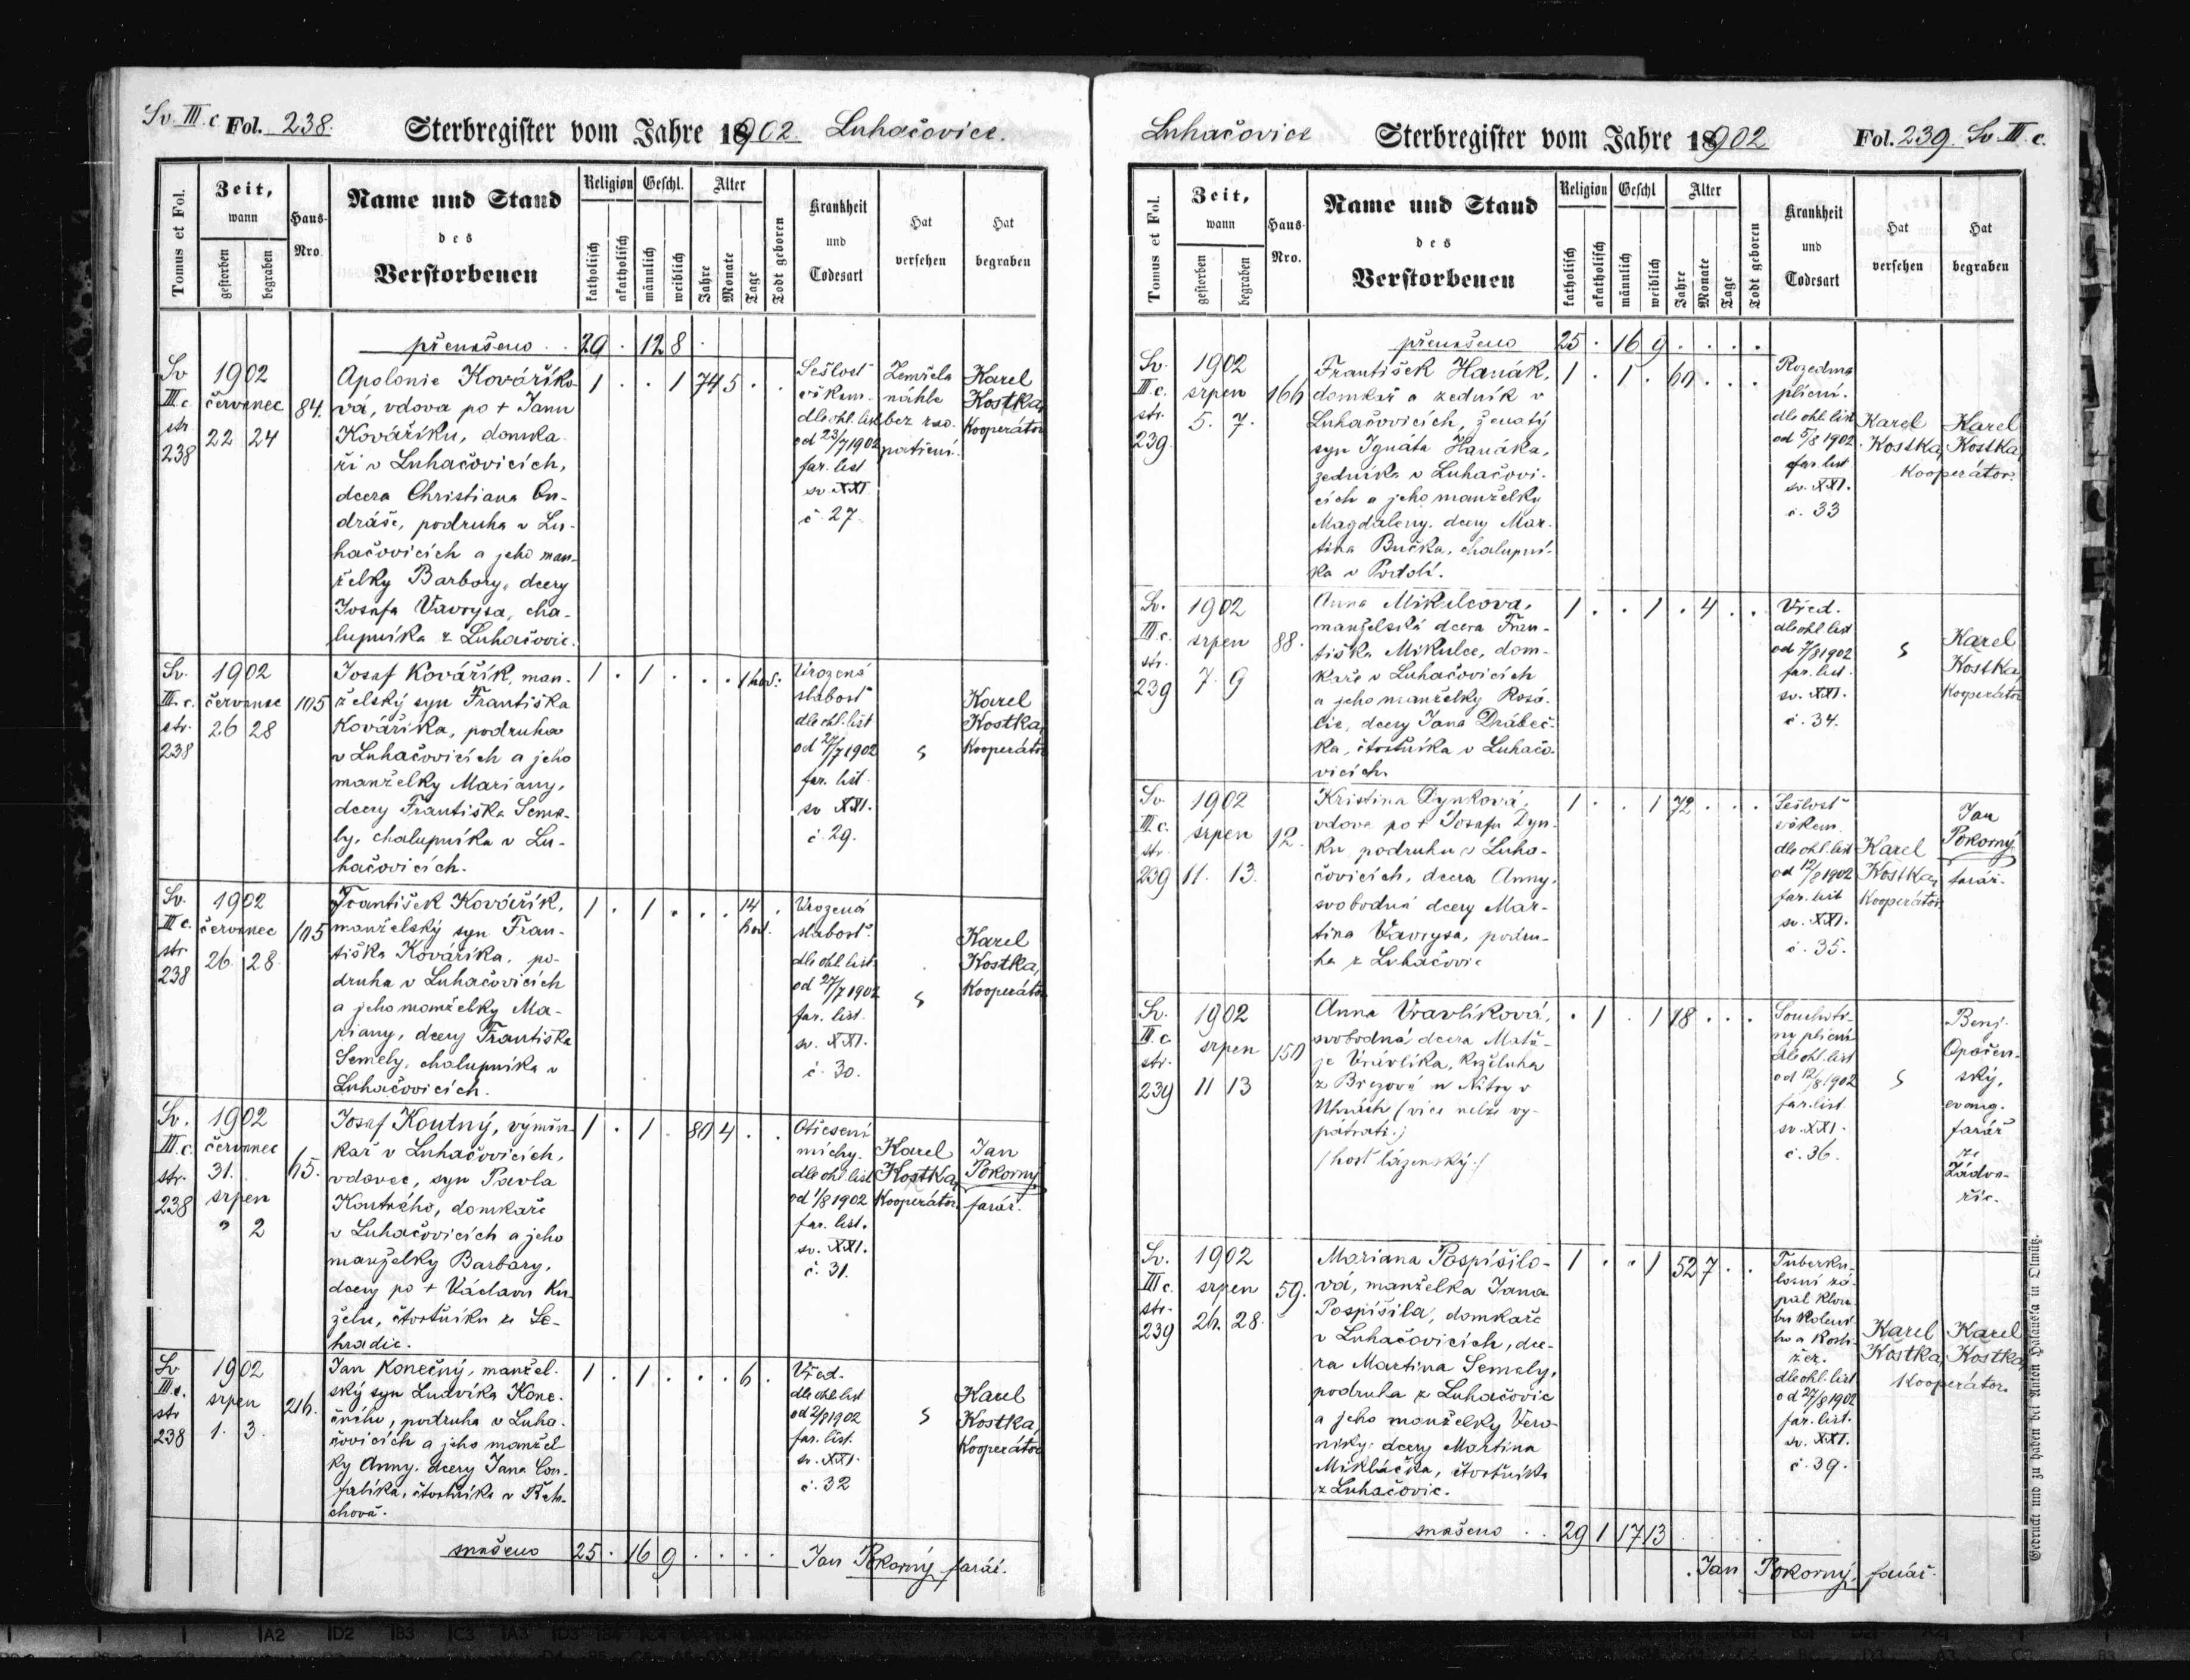 Sv. III. c Fol. 238.
Sterbregister vom Jahre 1902. Luhačovice.
Tomus et Fol.
Zeit, wann
gestorben
begraben
Haus-Nro.
Name und Stand
des
Verstorbenen
Religion
katholisch
akatholisch
Geschl.
männlich
weiblich
Alter
Jahre
Monate
Tage
Todt geboren
Krankheit
und
Todesart
Hat
versehen
Hat
begraben
přenešeno . . 20 . 12 8 .
Sv
III c
str.
238
1902
červenec
22 24
84.
Apolonie Kovaříko-
vá, vdova po + Janu
Kovaříku, domka-
ři v Luhačovicích,
dcera Christiana On-
dráše, podruha v Lu-
hačovicích a jeho man-
želky Barbory, dcery
Josefa Vavrysa, cha-
lupníka z Luhačovic.
1 . . 1 74 5 . .
Sešlost
věkem.
dle ohl. list
od 23/7 1902
far. list
sv. XXI.
č. 27.
Zemřela
náhle
bez zao-
patření.
Karel
Kostka,
Kooperátor
Sv.
III. c.
str.
238
1902
červenec
26 28
105
Josef Kovařík, man-
želský syn Františka
Kovaříka, podruha
v Luhačovicích a jeho
manželky Mariany,
dcery Františka Seme-
ly, chalupníka v Lu-
hačovicích.
1 . 1 . . . 1 hod.
Vrozená
slabost
dle ohl. list
od 27/7 1902
far. list.
sv XXI.
č. 29.
s
Karel
Kostka,
Kooperátor
Sv.
III c.
str.
238
1902
červenec
26. 28.
105
František Kovařík,
manželský syn Fran-
tiška Kovaříka, po-
druha v Luhačovicích
a jeho manželky Ma-
riany, dcery Františka
Semely, chalupníka v
Luhačovicích.
1 . 1 . . . 14 hod.
Vrozená
slabost.
dle ohl. list.
od 27/7 1902
far. list.
sv. XXI.
č. 30.
s
Karel
Kostka,
Kooperátor
Sv.
III. c.
str.
238
1902
červenec
31.
srpen
2
65.
Josef Koutný, výměn-
kař v Luhačovicích,
vdovec, syn Pavla
Koutného, domkaře
v Luhačovicích a jeho
manželky Barbory,
dcery po + Václavu Ku-
želu, čtvrtníku ze Se-
hradic.
1 . 1 . 80 4 . .
Otřesení
míchy.
dle ohl. list
od 1/8 1902
far. list.
sv. XXI.
č. 31.
Karel
Kostka,
Kooperátor.
Jan
Pokorný,
farář.
Sv
III. c.
str
238
1902
srpen
1. 3.
216.
Jan Konečný, manžel-
ský syn Ludvíka Kone-
čného, podruha v Luha-
čovicích a jeho manžel-
ky Anny, dcery Jana
čtvrtníka v
1 . 1 . . . 6 .
Vřed.
dle ohl. list
od 2/8 1902
far. list.
sv. XXI.
č. 32
s
Karel
Kostka,
Kooperátor
snešeno 25 . 16 9 . . . .
Jan Pokorný farář.
Luhačovice
Sterbregister vom Jahre 1902
Fol. 239. Sv. III. c.
Tomus et Fol.
Zeit, wann
gestorben
begraben
Haus-Nro.
Name und Stand
des
Verstorbenen
Religion
katholisch
akatholisch
Geschl
männlich
weiblich
Alter
Jahre
Monate
Tage
Todt geboren
Krankheit
und
Todesart
Hat
versehen
Hat
begraben
přenešeno 25 . 16 9 . . . .
Sv.
III. c.
str.
239.
1902
srpen
5. 7.
166
František Hanák,
domkař a zedník v
Luhačovicích, ženatý
syn Ignáta Hanáka,
zedníka v Luhačovi-
cích a jeho manželky
Magdaleny, dcery Mar-
tina Bučka, chalupní-
ka v Pozloví.
1 . 1 . 60 . . .
Rozedma
plicní.
dle ohl. list
od 5/8 1902.
far. list
sv. XXI.
č. 33
Karel
Kostka,
Karel
Kostka,
Kooperátor.
Sv.
III. c.
str.
239
1902
srpen
7. 9
88.
Anna Mikulcova,
manželská dcera Fran-
tiška Mikulce, dom-
kaře v Luhačovicích
a jeho manželky Rosá-
lie, dcery Jana Drábeč-
ka, čtvrtníka v Luhačo-
vicích.
1 . . 1 . 4 . .
Vřed.
dle ohl. list
od 7/8 1902
far. list.
sv. XXI.
č. 34.
s
Karel
Kostka,
Kooperátor
Sv.
III. c.
str.
239
1902
srpen
11. 13.
12.
Kristina Dynková,
vdova po + Josefu Dyn-
ku, podruhu v Luha-
čovicích, dcera Anny,
svobodná dcery Mar-
tina Vavrysa, podru-
ha z Luhačovic
1 . . 1 72 . . .
Sešlost
věkem.
dle ohl. list
od 12/8 1902
far. list
sv. XXI.
č. 35.
Karel
Kostka,
Kooperátor.
Jan
Pokorný,
farář.
Sv.
III. c.
str.
239
1902
srpen
11 13
150
Anna Vravlíková,
svobodná dcera Matě-
je Vravlíka, koželuha
z Brezové u Nitry v
Uhrách (více nelze vy-
pátrati.)
/host lázenský./
. 1 . 1 18 . . .
Souchoti-
ny plicní
dle ohl. list
od 12/8 1902
far. list
sv. XXI.
č. 36.
s
Benj.
Opočen-
ský,
evang.
farář
ze
Zádve-
řic.
Sv.
III c.
str.
239
1902
srpen
26. 28.
59.
Mariana Pospíšilo-
vá, manželka Jana
Pospíšila, domkaře
v Luhačovicích, dce-
ra Martina Semely,
podruha z Luhačovic
a jeho manželky Vero-
niky, dcery Martina
Mikláčka, čtvrtníka
z Luhačovic.
1 . . 1 52 7 . .
Tuberku-
losní zá-
pal klou-
bu kolení-
ho a
dle ohl. list
od 27/8 1902
far. list.
sv. XXI.
č. 39.
Karel
Kostka,
Karel
Kostka,
Kooperátor.
snešeno . . 29 1 17 13
Jan Pokorný, farář.
Gedruckt und zu haben bei Anton Halauska in Olmütz.